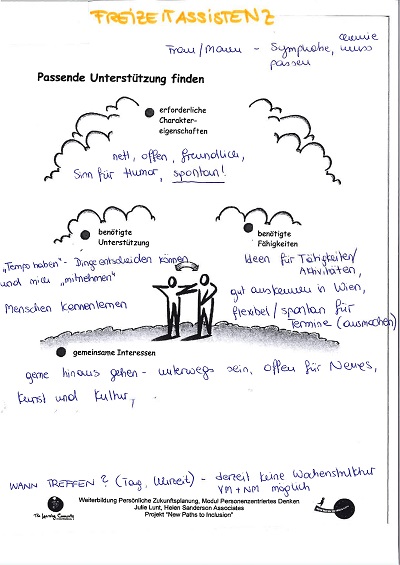 FREIZEITASSISTENZ
Frau/Mann - Sympathie, muss
passen
Passende Unterstützung finden
erforderliche
Charakter-
eigenschaften
nett, offen, freundlich,
Sinn für Humor, spontan!
benötigte
Unterstützung
benötigte
Fähigkeiten
„Tempo haben“ - Dinge entscheiden können
und mich „mitnehmen“
Menschen kennenlernen
Ideen für Tätigkeiten/
Aktivitäten,
gut auskennen in Wien,
flexibel/spontan für
Termine (ausmachen)
gemeinsame Interessen
gerne hinaus gehen - unterwegs sein, offen für Neues,
Kunst und Kultur,
WANN TREFFEN? (Tag, Uhrzeit) - derzeit keine Wochenstruktur
VM + NM möglich
Weiterbildung Persönliche Zukunftsplanung, Modul Personenzentriertes Denken
Julie Lunt, Helen Sanderson Associates
Projekt "New Paths to Inclusion"
The Learning Community